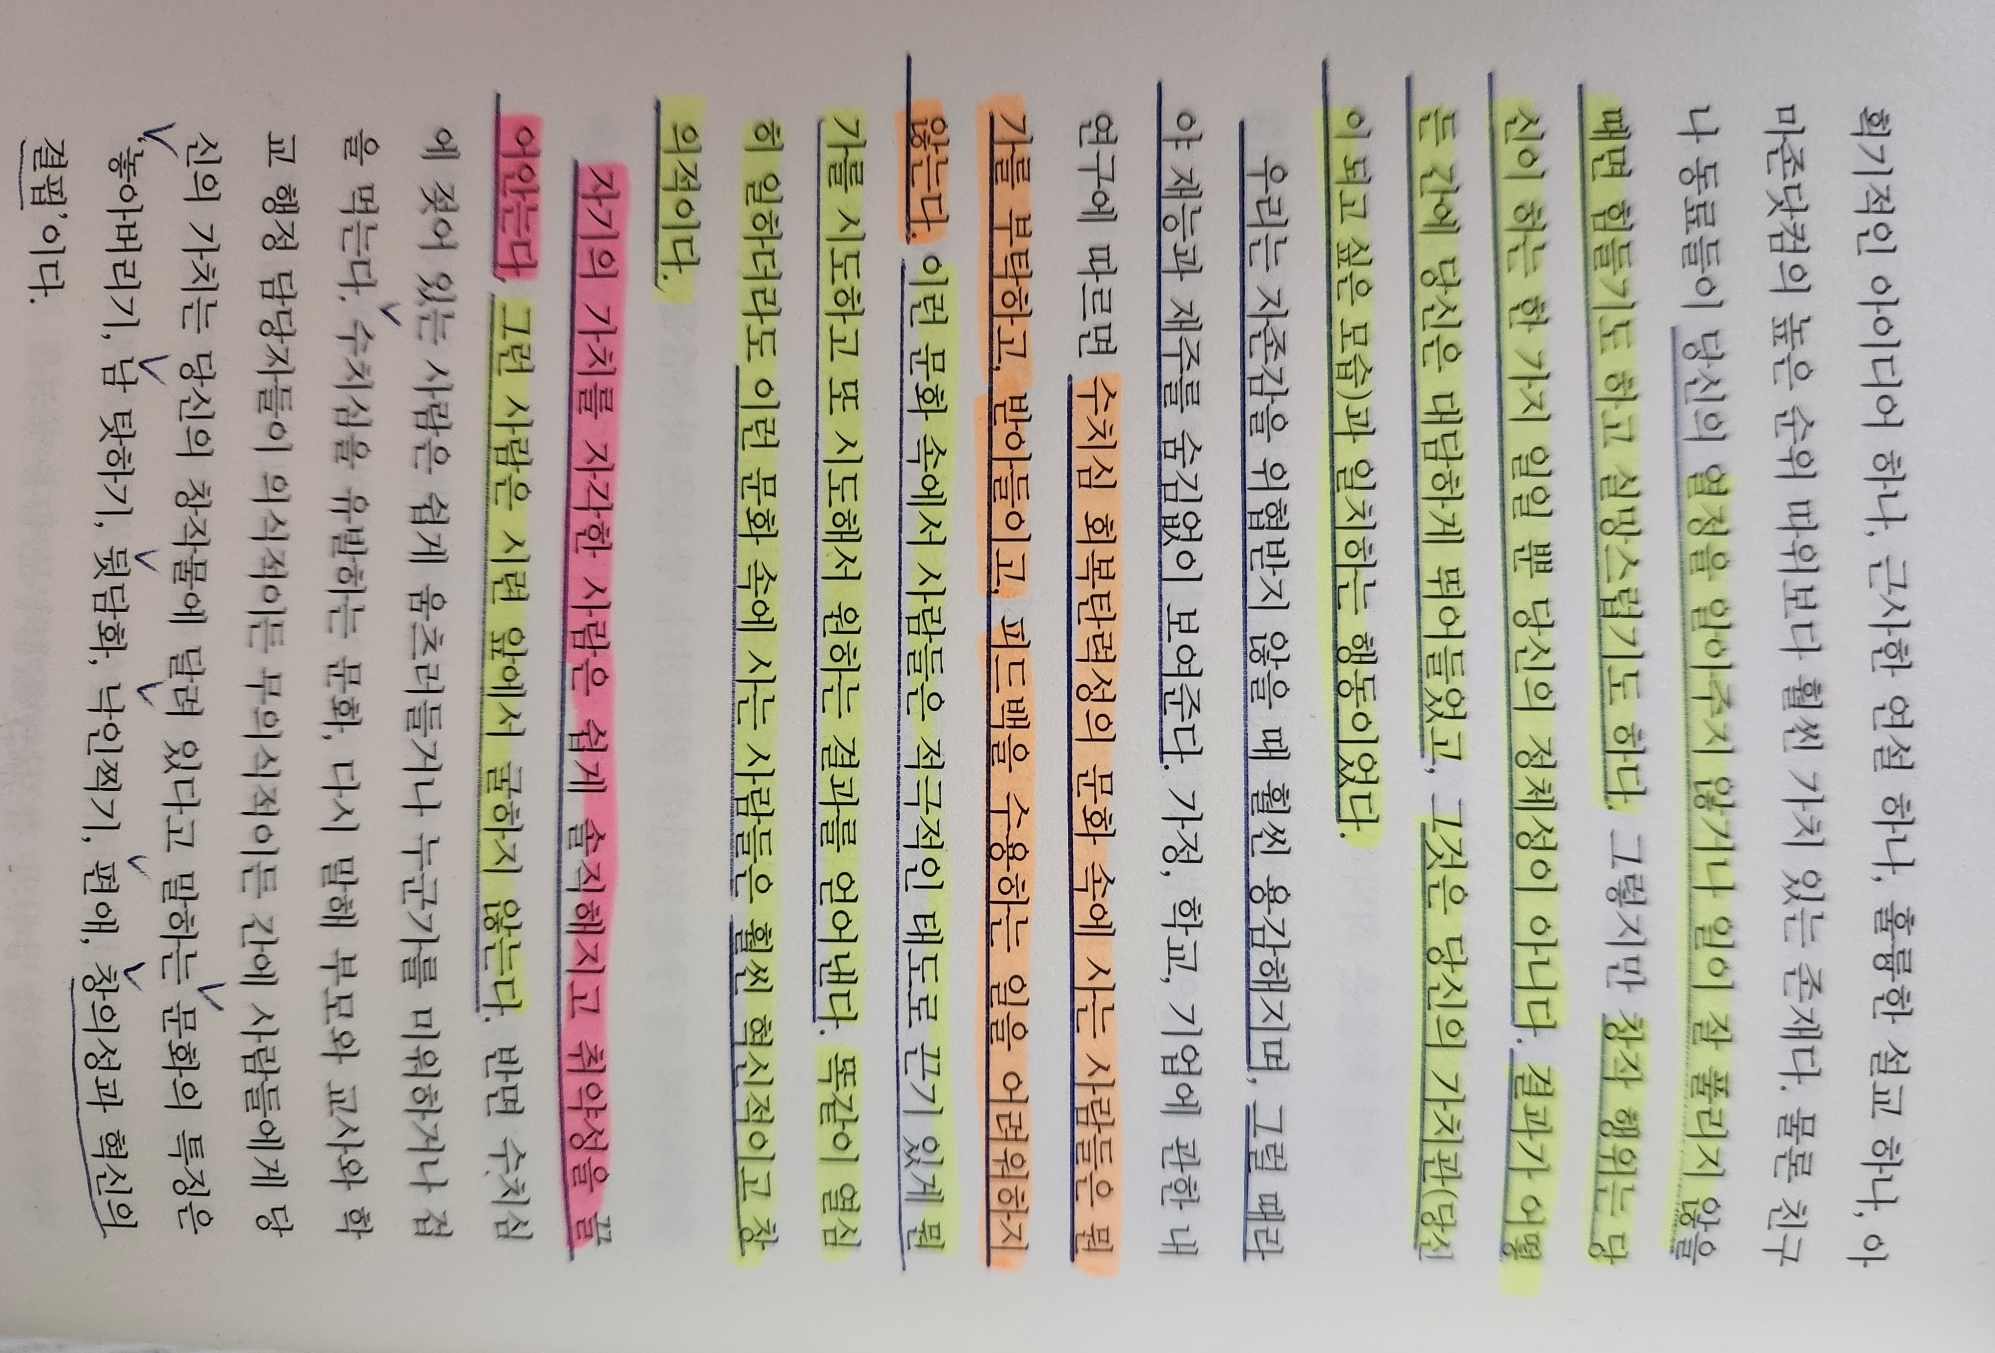 획기적인 아이디어 하나, 근사한 연설 하나, 훌륭한 설교 하나, 아
마존닷컴의 높은 순위 따위보다 훨씬 가치 있는 존재다. 물론 친구
나 동료들이 당신의 열정을 알아주지 않거나 일이 잘 풀리지 않을
때면 힘들기도 하고 실망스럽기도 하다. 그렇지만 창작 행위는 당
신이 하는 한 가지 일일 뿐 당신의 정체성이 아니다. 결과가 어떻
든 간에 당신은 대담하게 뛰어들었고, 그것은 당신의 가치관(당신
이 되고 싶은 모습)과 일치하는 행동이었다.
우리는 자존감을 위협받지 않을 때 훨씬 용감해지며, 그럴 때라
야 재능과 재주를 숨김없이 보여준다. 가정, 학교, 기업에 관한 내
연구에 따르면 수치심 회복탄력성의 문화 속에 사는 사람들은 뭔
가를 부탁하고, 받아들이고, 피드백을 수용하는 일을 어려워하지
않는다. 이런 문화 속에서 사람들은 적극적인 태도로 끈기 있게 뭔
가를 시도하고 또 시도해서 원하는 결과를 얻어낸다. 똑같이 열심
히 일하더라도 이런 문화 속에 사는 사람들은 훨씬 혁신적이고 창
의적이다.
자기의 가치를 자각한 사람은 쉽게 솔직해지고 취약성을 끌
어안는다. 그런 사람은 시련 앞에서 굴하지 않는다. 반면 수치심
에 젖어 있는 사람은 쉽게 움츠러들거나 누군가를 미워하거나 겁
을 먹는다. 수치심을 유발하는 문화, 다시 말해 부모와 교사와 학
교 행정 담당자들이 의식적이든 무의식적이든 간에 사람들에게 당
신의 가치는 당신의 창작물에 달려 있다고 말하는 문화의 특징은
'놓아버리기, 남 탓하기, 뒷담화, 낙인찍기, 편애, 창의성과 혁신의
결핍'이다.